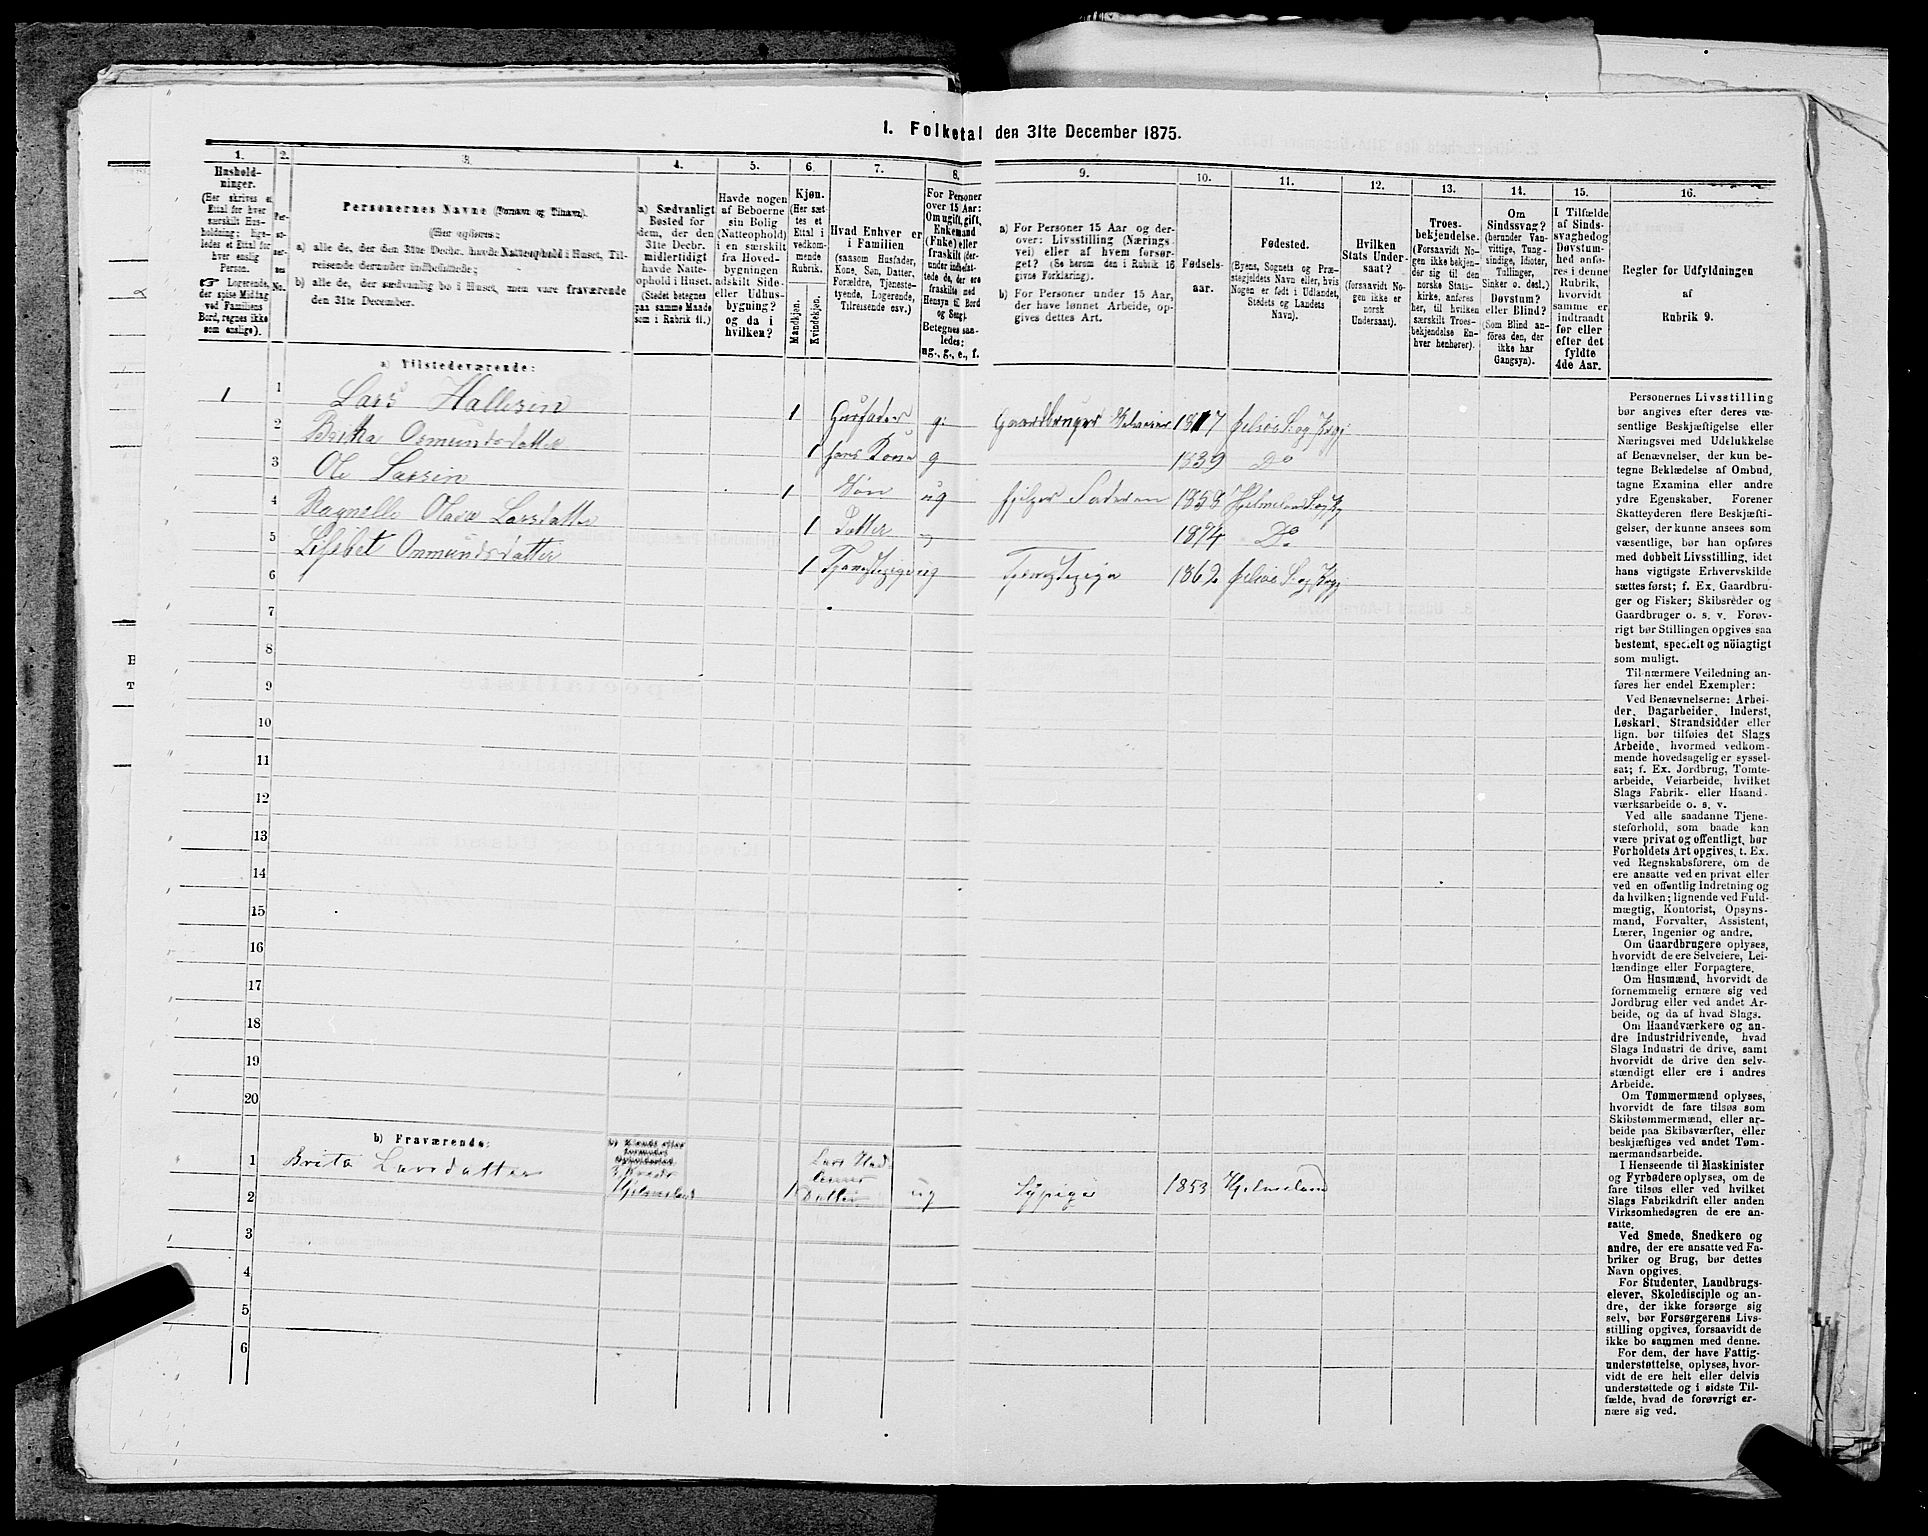 1. Folketal den 31te December 1875.
1.
2.
3.
4.
5.
6.
7.
8.
9.
10.
11.
12.
13.
14.
15.
16.
Hushold-
ninger.
(Her skrives et
Ettal for hver
særskilt Hus-
holdning; lige-
ledes et Ettal for
hver enslig
Person.
☞ Logerende,
der spise Middag
ved Familiens
Bord, regnes ikke
som enslige).
Per-
so-
ner-
nes
No.
Personernes Navne (Fornavn og Tilnavn).
(Her opføres:
a) alle de, der den 31te Decbr. havde Natteophold i Huset, Til-
reisende derunder indbefattede;
b) alle de, der sædvanlig bo i Huset, men vare fraværende
den 31te December.
a) Sædvanligt
Bosted for
dem, der den
31te Decbr.
midlertidigt
havde Natte-
ophold i Huset.
(Stedet betegnes
paa samme Maade
som i Rubrik 11.)
Havde nogen
af Beboerne
sin Bolig
(Natteophold)
i en særskilt
fra Hoved-
bygningen
adskilt Side-
eller Udhus-
bygning?
og da i
hvilken?
Kjøn.
(Her sæt-
tes et
Ettal i
vedkom-
mende
Rubrik.
Mandkjøn.
Kvindekjøn.
Hvad Enhver er
i Familien
(saasom Husfader,
Kone, Søn, Datter,
Forældre, Tjeneste-
tyende, Logerende,
Tilreisende osv.)
For Personer
over 15 Aar:
Om ugift, gift,
Enkemand
(Enke) eller
fraskilt (der-
under indbefat-
tede de, der ere
fraskilte med
Hensyn til Bord
og Seng).
Betegnes saa-
ledes:
ug., g., e., f.
a) For Personer 15 Aar og der-
over: Livsstilling (Nærings-
vei) eller af hvem forsør-
get? (Se herom den i Rubrik 16
givne Forklaring).
b) For Personer under 15 Aar,
der have lønnet Arbeide, op-
gives dettes Art.
Fødsels-
aar.
Fødested.
(Byens, Sognets og Præ-
stegjeldets Navn eller, hvis
Nogen er født i Udlandet,
Stedets og Landets
Navn).
Hvilken
Stats Under-
saat?
(forsaavidt No-
gen ikke er
norsk
Undersaat).
Troes-
bekjendelse.
(Forsaavidt No-
gen ikke bekjen-
der sig til den
norske Stats-
kirke, anføres
her, til hvilken
særskilt Troes-
bekjendelse En-
hver henhører).
Om
Sindssvag?
(herunder Van-
vittige, Tung-
sindige, Idioter,
Tullinger,
Sinker o. desl.)
Døvstum?
eller Blind?
(Som Blind an-
føres den, der
ikke har
Gangsyn).
I Tilfælde
af Sinds-
svaghed og
Døvstum-
hed anfø-
res i denne
Rubrik,
hvorvidt
samme er
indtraadt
før eller
efter det
fyldte
4de Aar.
Regler for Udfyldningen
af
Rubrik 9.
a) Tilstedeværende:
1 1 Lars Hallesen 1 Husfader g. Gaardbruger Selveier 1817
2 Brita Osmundsdatter 1 hans Kone g 1839 Do
3 Ole Larsen 1 Søn ug hjelper Faderen 1858
4 Ragnelle Olava Larsdatter 1 Datter 1874 Do
5 Lisabet Onmundsdatter 1 ug 1862
6
7
8
9
10
11
12
13
14
15
16
17
18
19
20
b) Fraværende:
b) Kjendt eller
formodet
Opholdssted.
1 Brita Larsdatter Hjelmeland 1 Lars
Datter ug Sypige 1853 Hjelmeland
2
3
4
5
6
Personernes Livsstilling
bør angives efter deres væ-
sentlige Beskjæftigelse eller
Næringsvei med Udelukkelse
af Benævnelser, der kun be-
tegne Beklædelse af Ombud,
tagne Examina eller andre
ydre Egenskaber. Forener
Skatteyderen flere Beskjæfti-
gelser, der kunne ansees som
væsentlige, bør han opføres
med dobbelt Livsstilling, idet
hans vigtigste Erhvervskilde
sættes først; f. Ex. Gaardbru-
ger og Fisker; Skibsreder og
Gaardbruger o. s. v. Forøv-
rigt bør Stillingen opgives saa
bestemt, specielt og nöiagtigt
som muligt.
Til nærmere Veiledning an-
føres her endel Exempler:
Ved Benævnelserne: Arbei-
der, Dagarbeider, Inderst,
Løskarl, Strandsidder eller
lign. bør tilføies det Slags
Arbeide, hvormed vedkom-
mende hovedsagelig er syssel-
sat; f. Ex. Jordbrug, Tomte-
arbeide, Veiarbeide, hvilket
Slags Fabrik- eller Haand-
værksarbeide o. s. v.
Ved alle saadanne Tjene-
steforhold, som baade kan
være privat og offentligt, bør
Forholdets Art opgives, t. Ex.
ved Regnskabsførere, om de
ere ansatte ved en privat eller
ved en offentlig Indretning og
da hvilken; lignende ved Fuld-
mægtig, Kontorist, Opsyns-
mand, Forvalter, Assistent,
Lærer, Ingeniør og andre.
Om Gaardbrugere oplyses,
hvorvidt de ere Selveiere, Lei-
lændinge eller Forpagtere.
Om Husmænd, hvorvidt de
fornemmelig ernære sig ved
Jordbrug eller ved andet Ar-
beide, og da af hvad Slags.
Om Haandværkere og an-
dre Industridrivende, hvad
Slags Industri de drive, samt
hvorvidt de drive den selv-
stændigt eller ere i andres
Arbeide.
Om Tømmermænd oplyses,
hvorvidt de fare tilsøs som
Skibstømmermænd, eller ar-
beide paa Skibsværfter, eller
beskjæftiges ved andet Tøm-
mermandsarbeide.
I Henseende til Maskinister
og Fyrbødere oplyses, om de
fare tilsøs eller ved hvilket
Slags Fabrikdrift eller anden
Virksomhedsgren de ere an-
satte.
Ved Smede, Snedkere og
andre, der ere ansatte ved Fa-
briker og Brug, bør dettes
Navn opgives.
For Studenter, Landbrugs-
elever, Skoledisciple og an-
dre, der ikke forsørge sig
selv, bør Forsørgerens Livs-
stilling opgives, forsaavidt de
ikke bo sammen med denne.
For dem, der have Fattig-
understøttelse, oplyses, hvor-
vidt de ere helt eller delvis
understøttede og i sidste Til-
fælde, hvad de forøvrigt er-
nære sig ved.